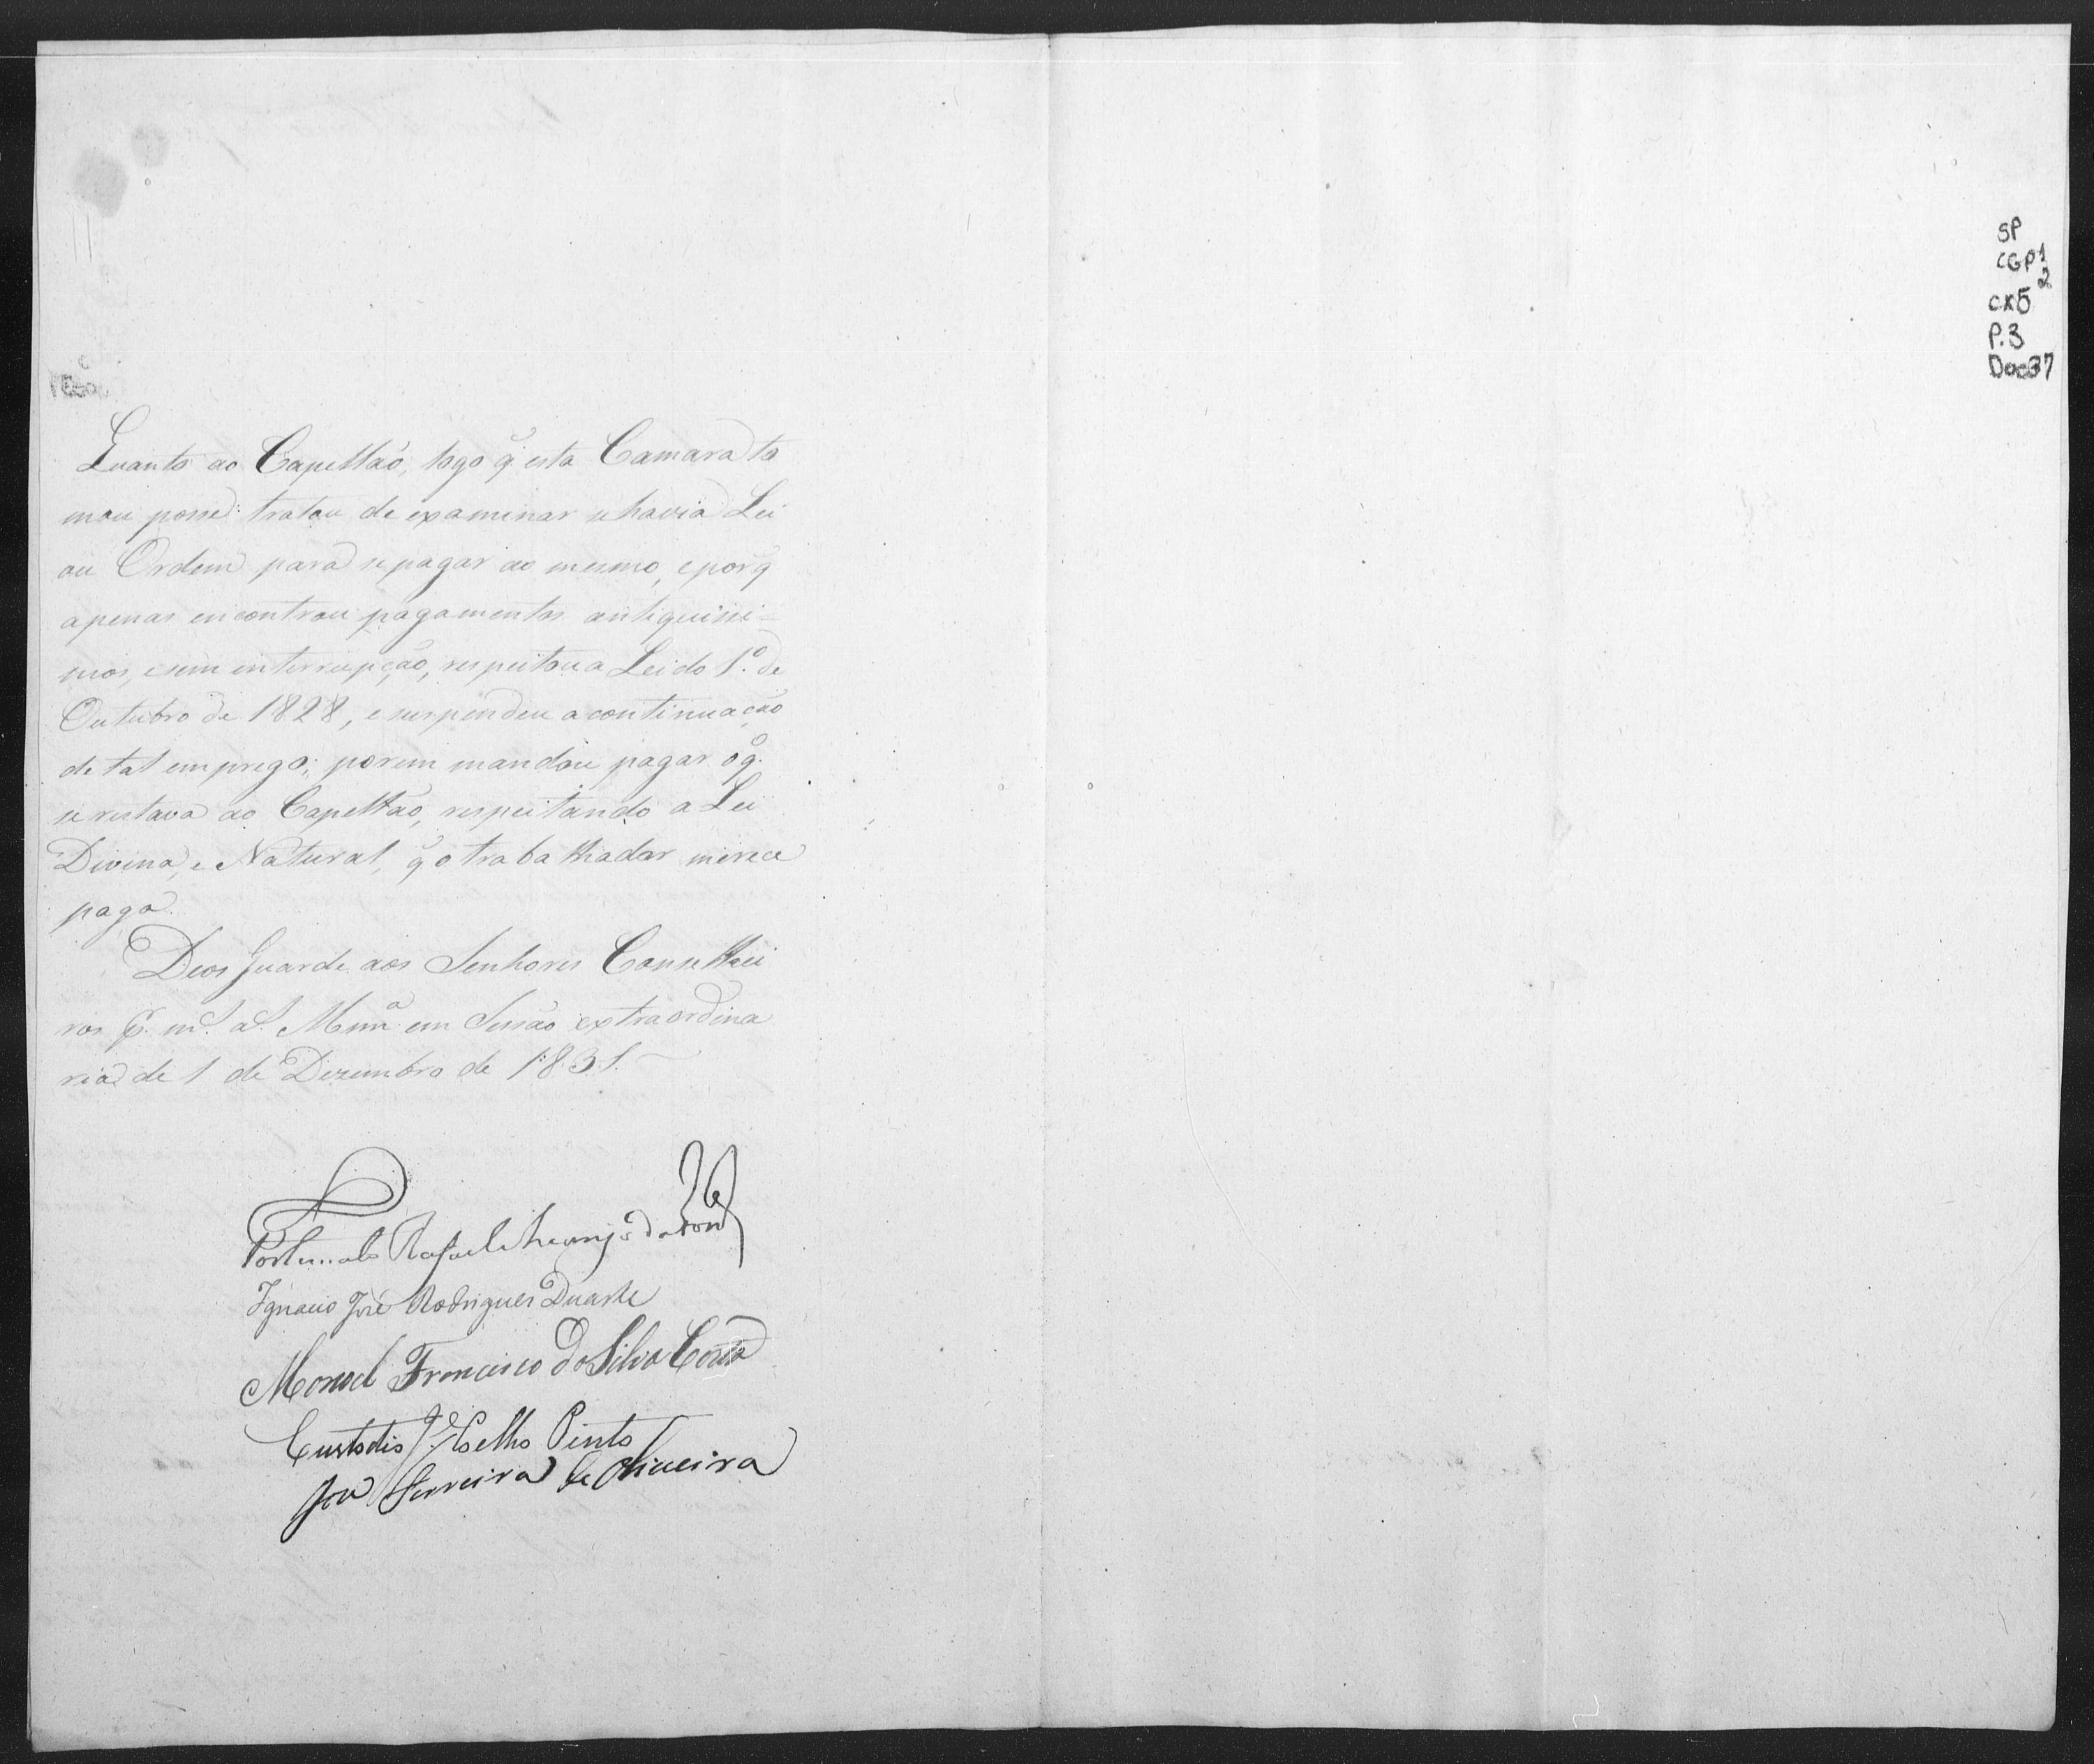 Quanto ao Capellão, logo q̃ esta Camara to
mou posse: tratou de examinar se havia Lei
ou Ordem para se pagar ao mesmo, e porq̃
apenas encontrou pagamentos antiquissi=
mos, e sem enterrupção, respeitou a Lei do 1.º de
Outubro de 1828, e suspendeu a continuação
de tal emprego; porem mandou pagar o q.
se restava ao Capellão, respeitando a Lei
Divina, e Natural, q̃ o trabalhador merece
paga.
Deos Guarde aos Senhores Conselhei
ros P. m.s a.s Mnna em Sessão extraordina
ria de 1 de Dezembro de 1831.
Fortunato Rafael Arcanjo da Fonc
Ignacio José Rodrigues Duarte
Manoel Francisco da Silva Costa
Custodio J.e Coelho Pinto
José Ferreira de Oliveira
SP
CGP1
2
CX5
P.3
Doc37